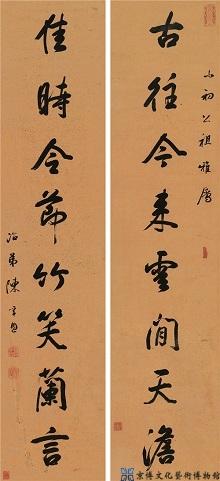 小初公祖雅屬
古往今来雲閒天澹
佳時令節竹笑蘭言
治弟陳孚恩
京博文化藝術博物館